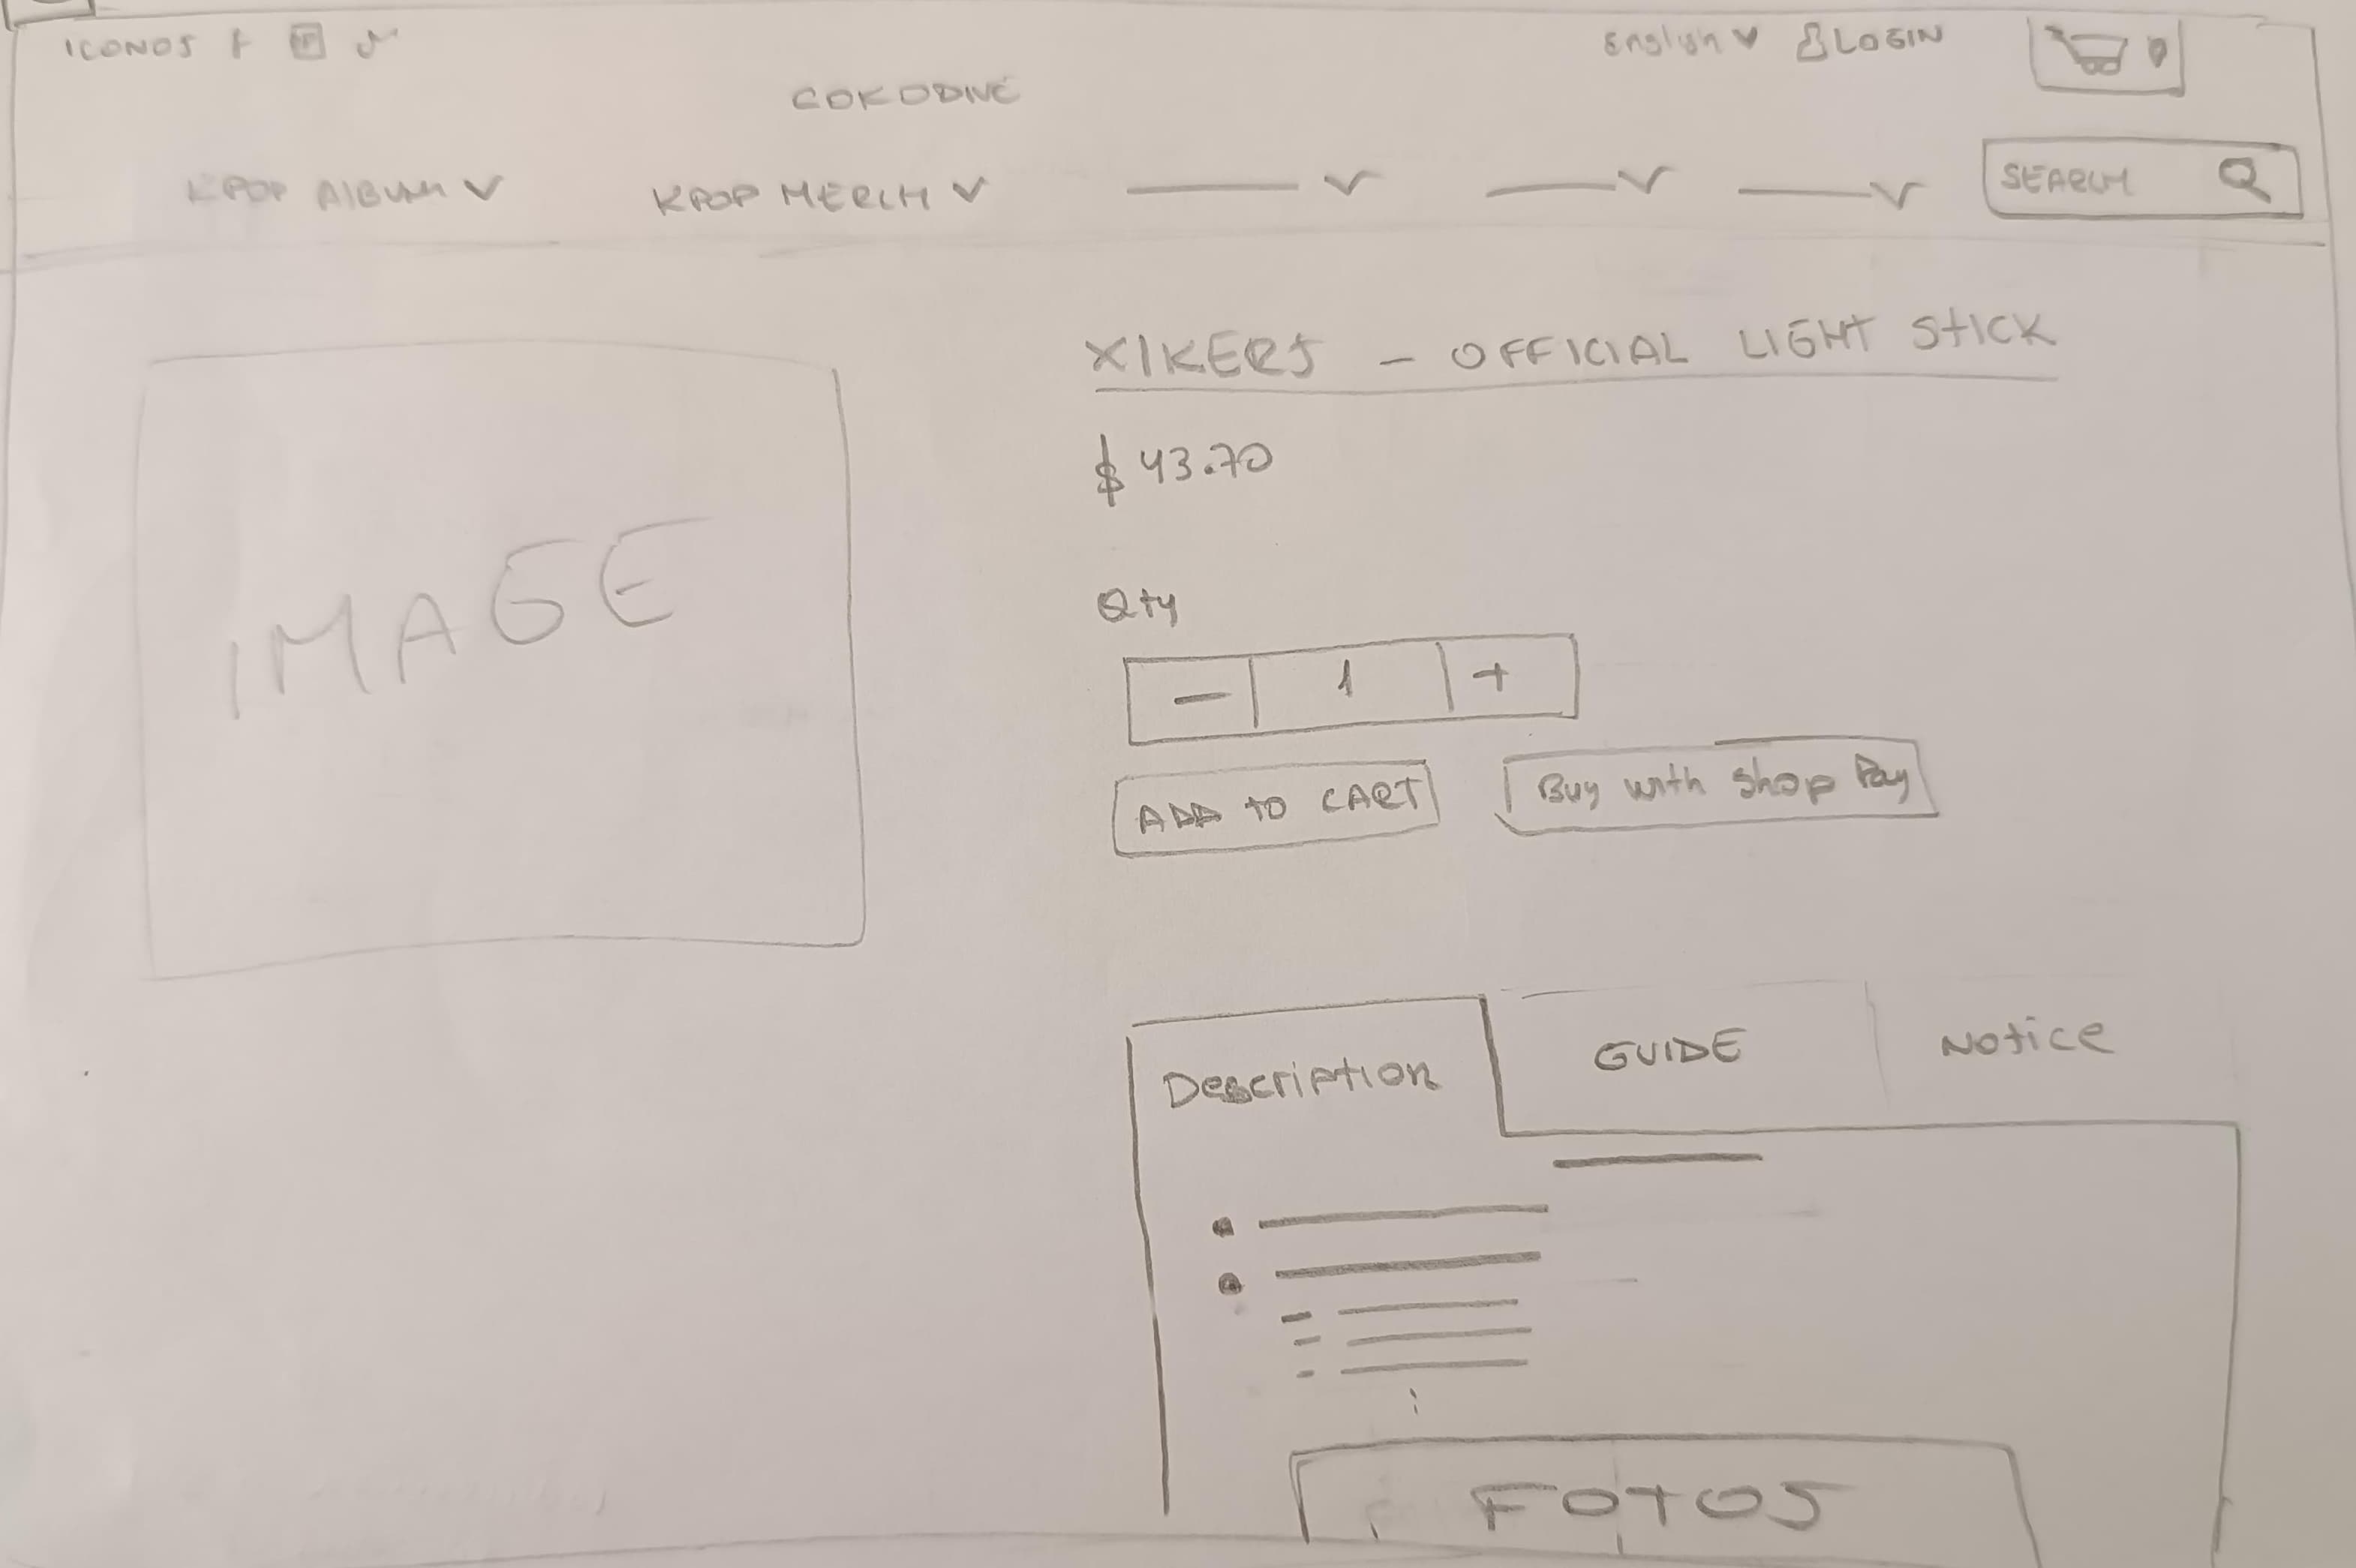 ICONOS f
English LOGIN 0
COKODIVE
KPOP AlBUM KPOP MERCH SEARCH
XIKERS - OFFICIAL LIGHT STICK
$ 43.70
IMAGE
Qty
- 1 +
ADD TO CART Buy with Shop Pay
Description GUIDE Notice
FOTOS